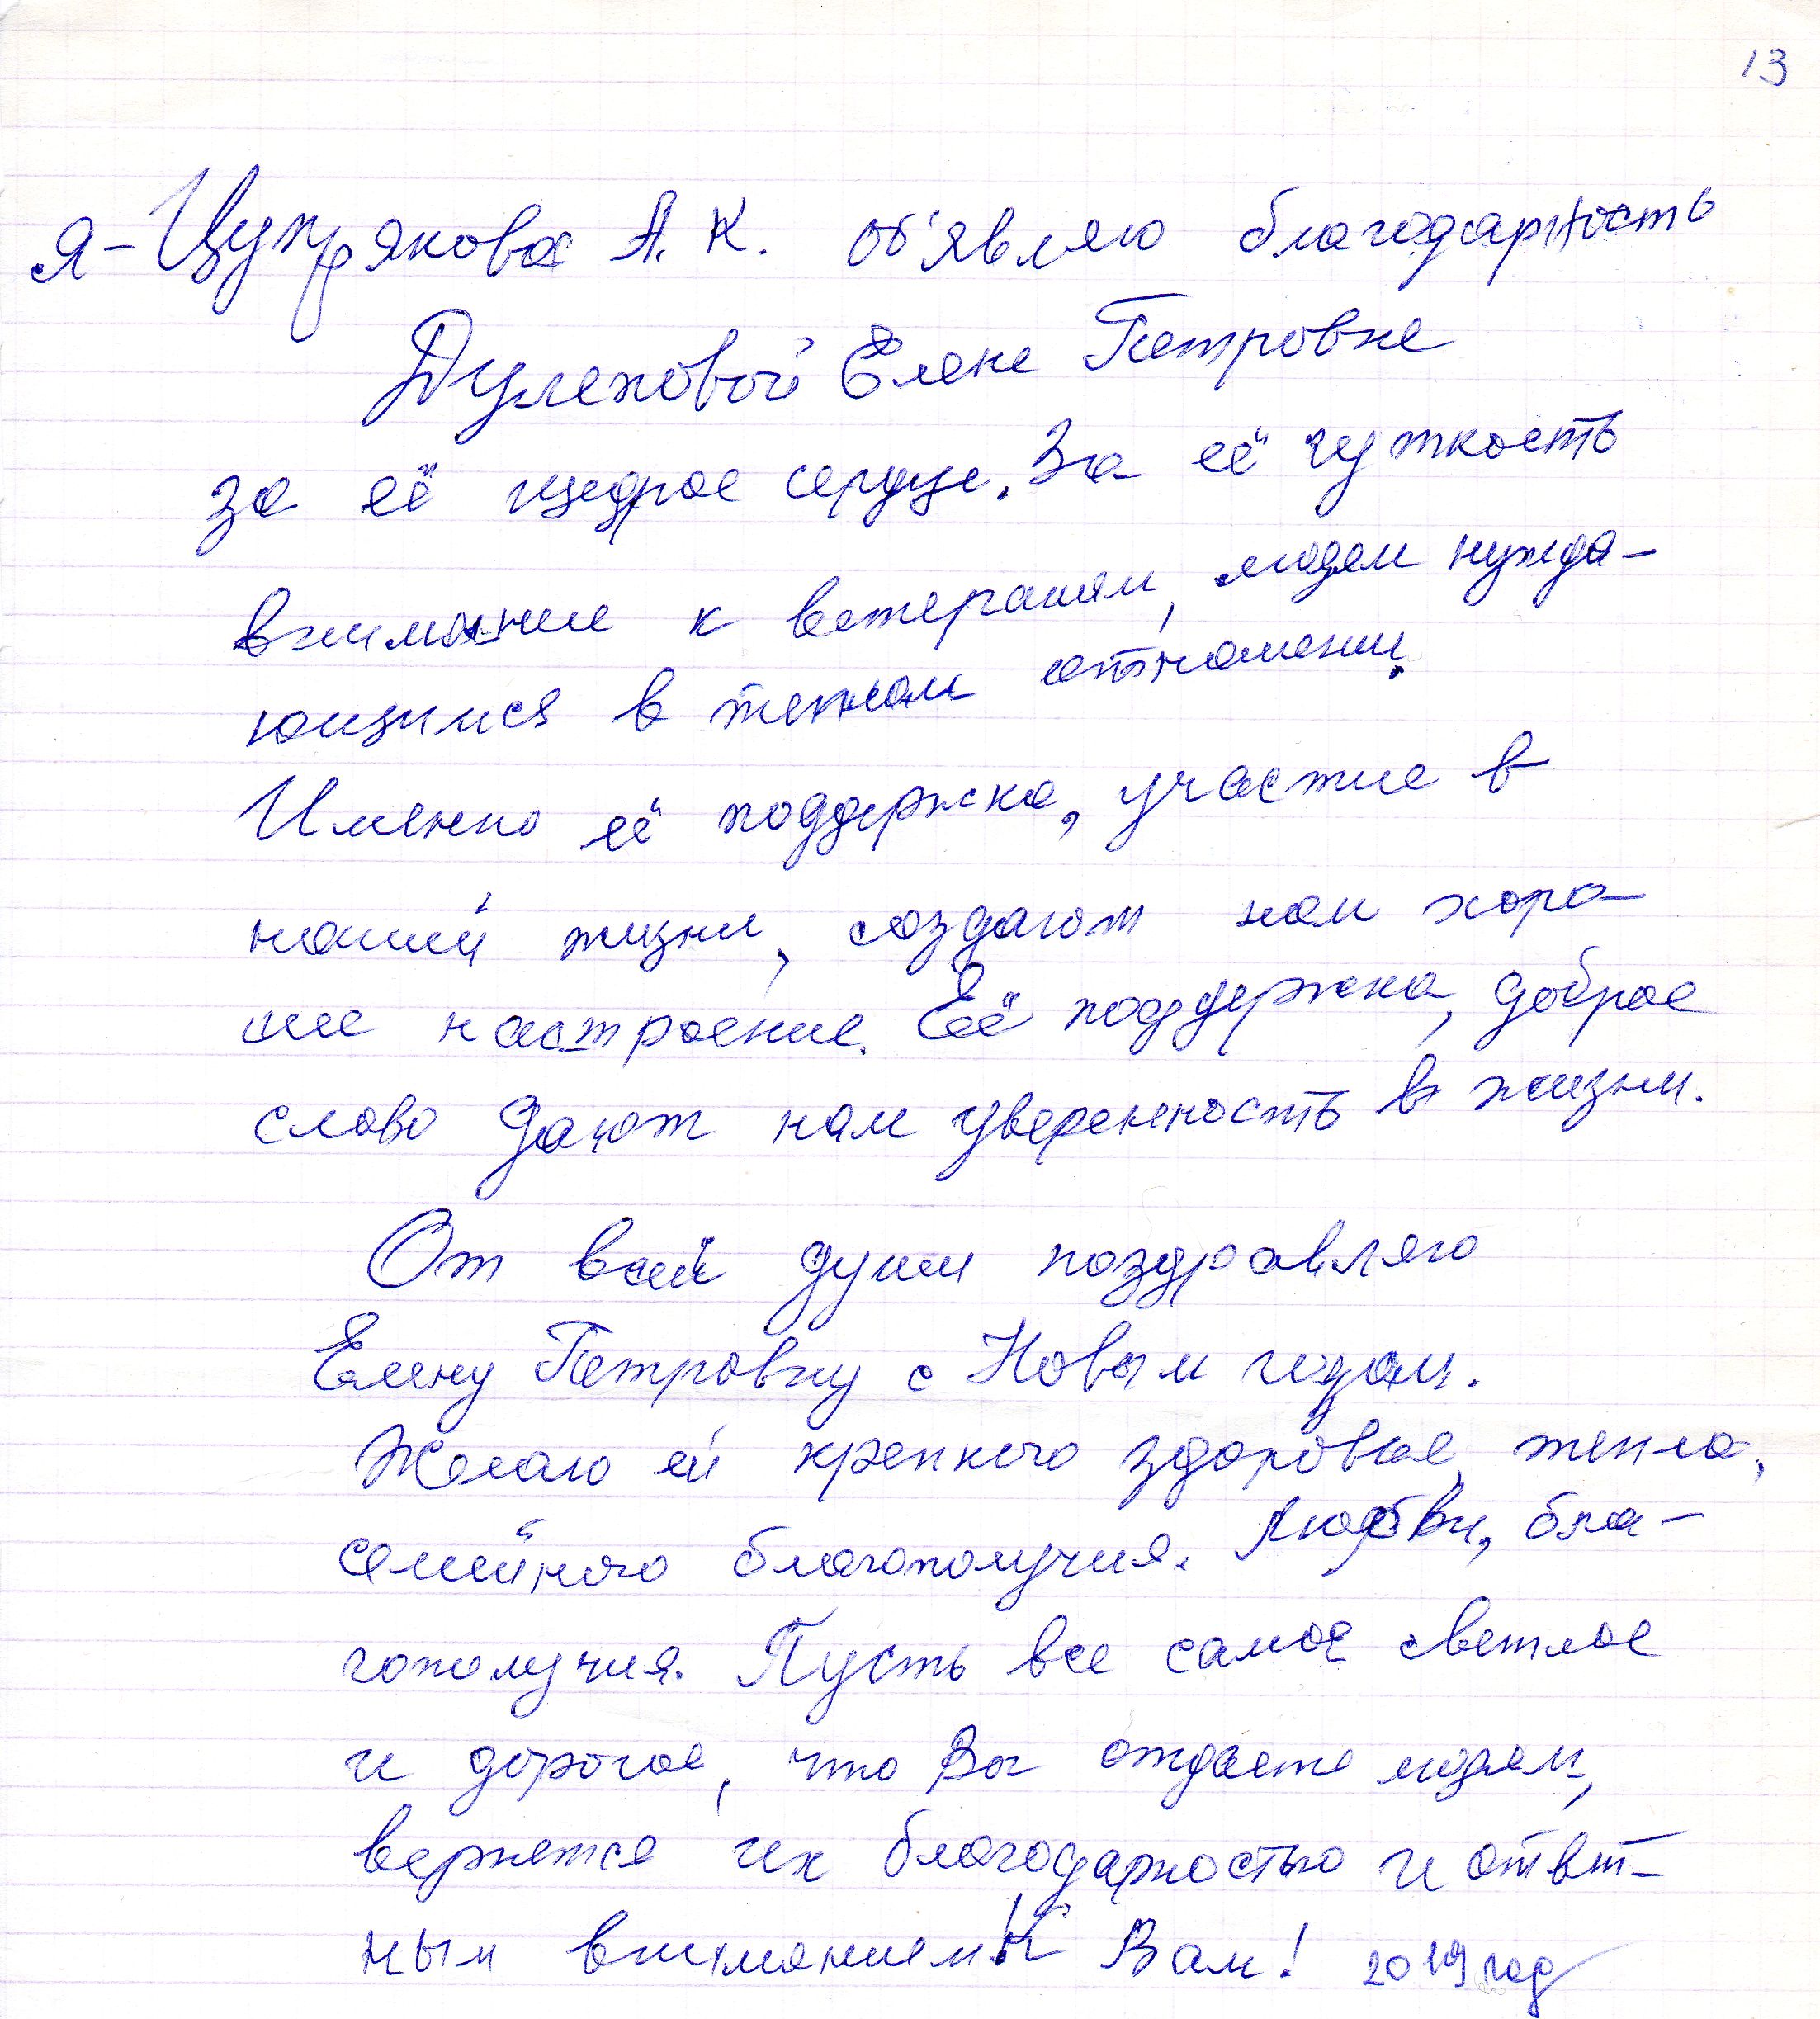 13
Я - Цупрякова А. К. об'являю благодарность
Дулеповой Елене Петровне
за её щедрое сердце. За её чуткость
внимание к ветеранам, людям нужда-
ющимся в теплом отношении.
Именно её поддержка, участие в
нашей жизни, создают нам хоро-
шее настроение. Её поддержка, доброе
слово дают нам уверенность в жизни.
От всей души поздравляю
Елену Петровну с Новым годом.
Желаю ей крепкого здоровья, тепла,
семейного благополучия. Любви, бла-
гополучия. Пусть все самое светлое
и дорогое, что Вы отдаете людям,
вернется их благодарностью и ответ-
ным вниманием К Вам! 2019 год